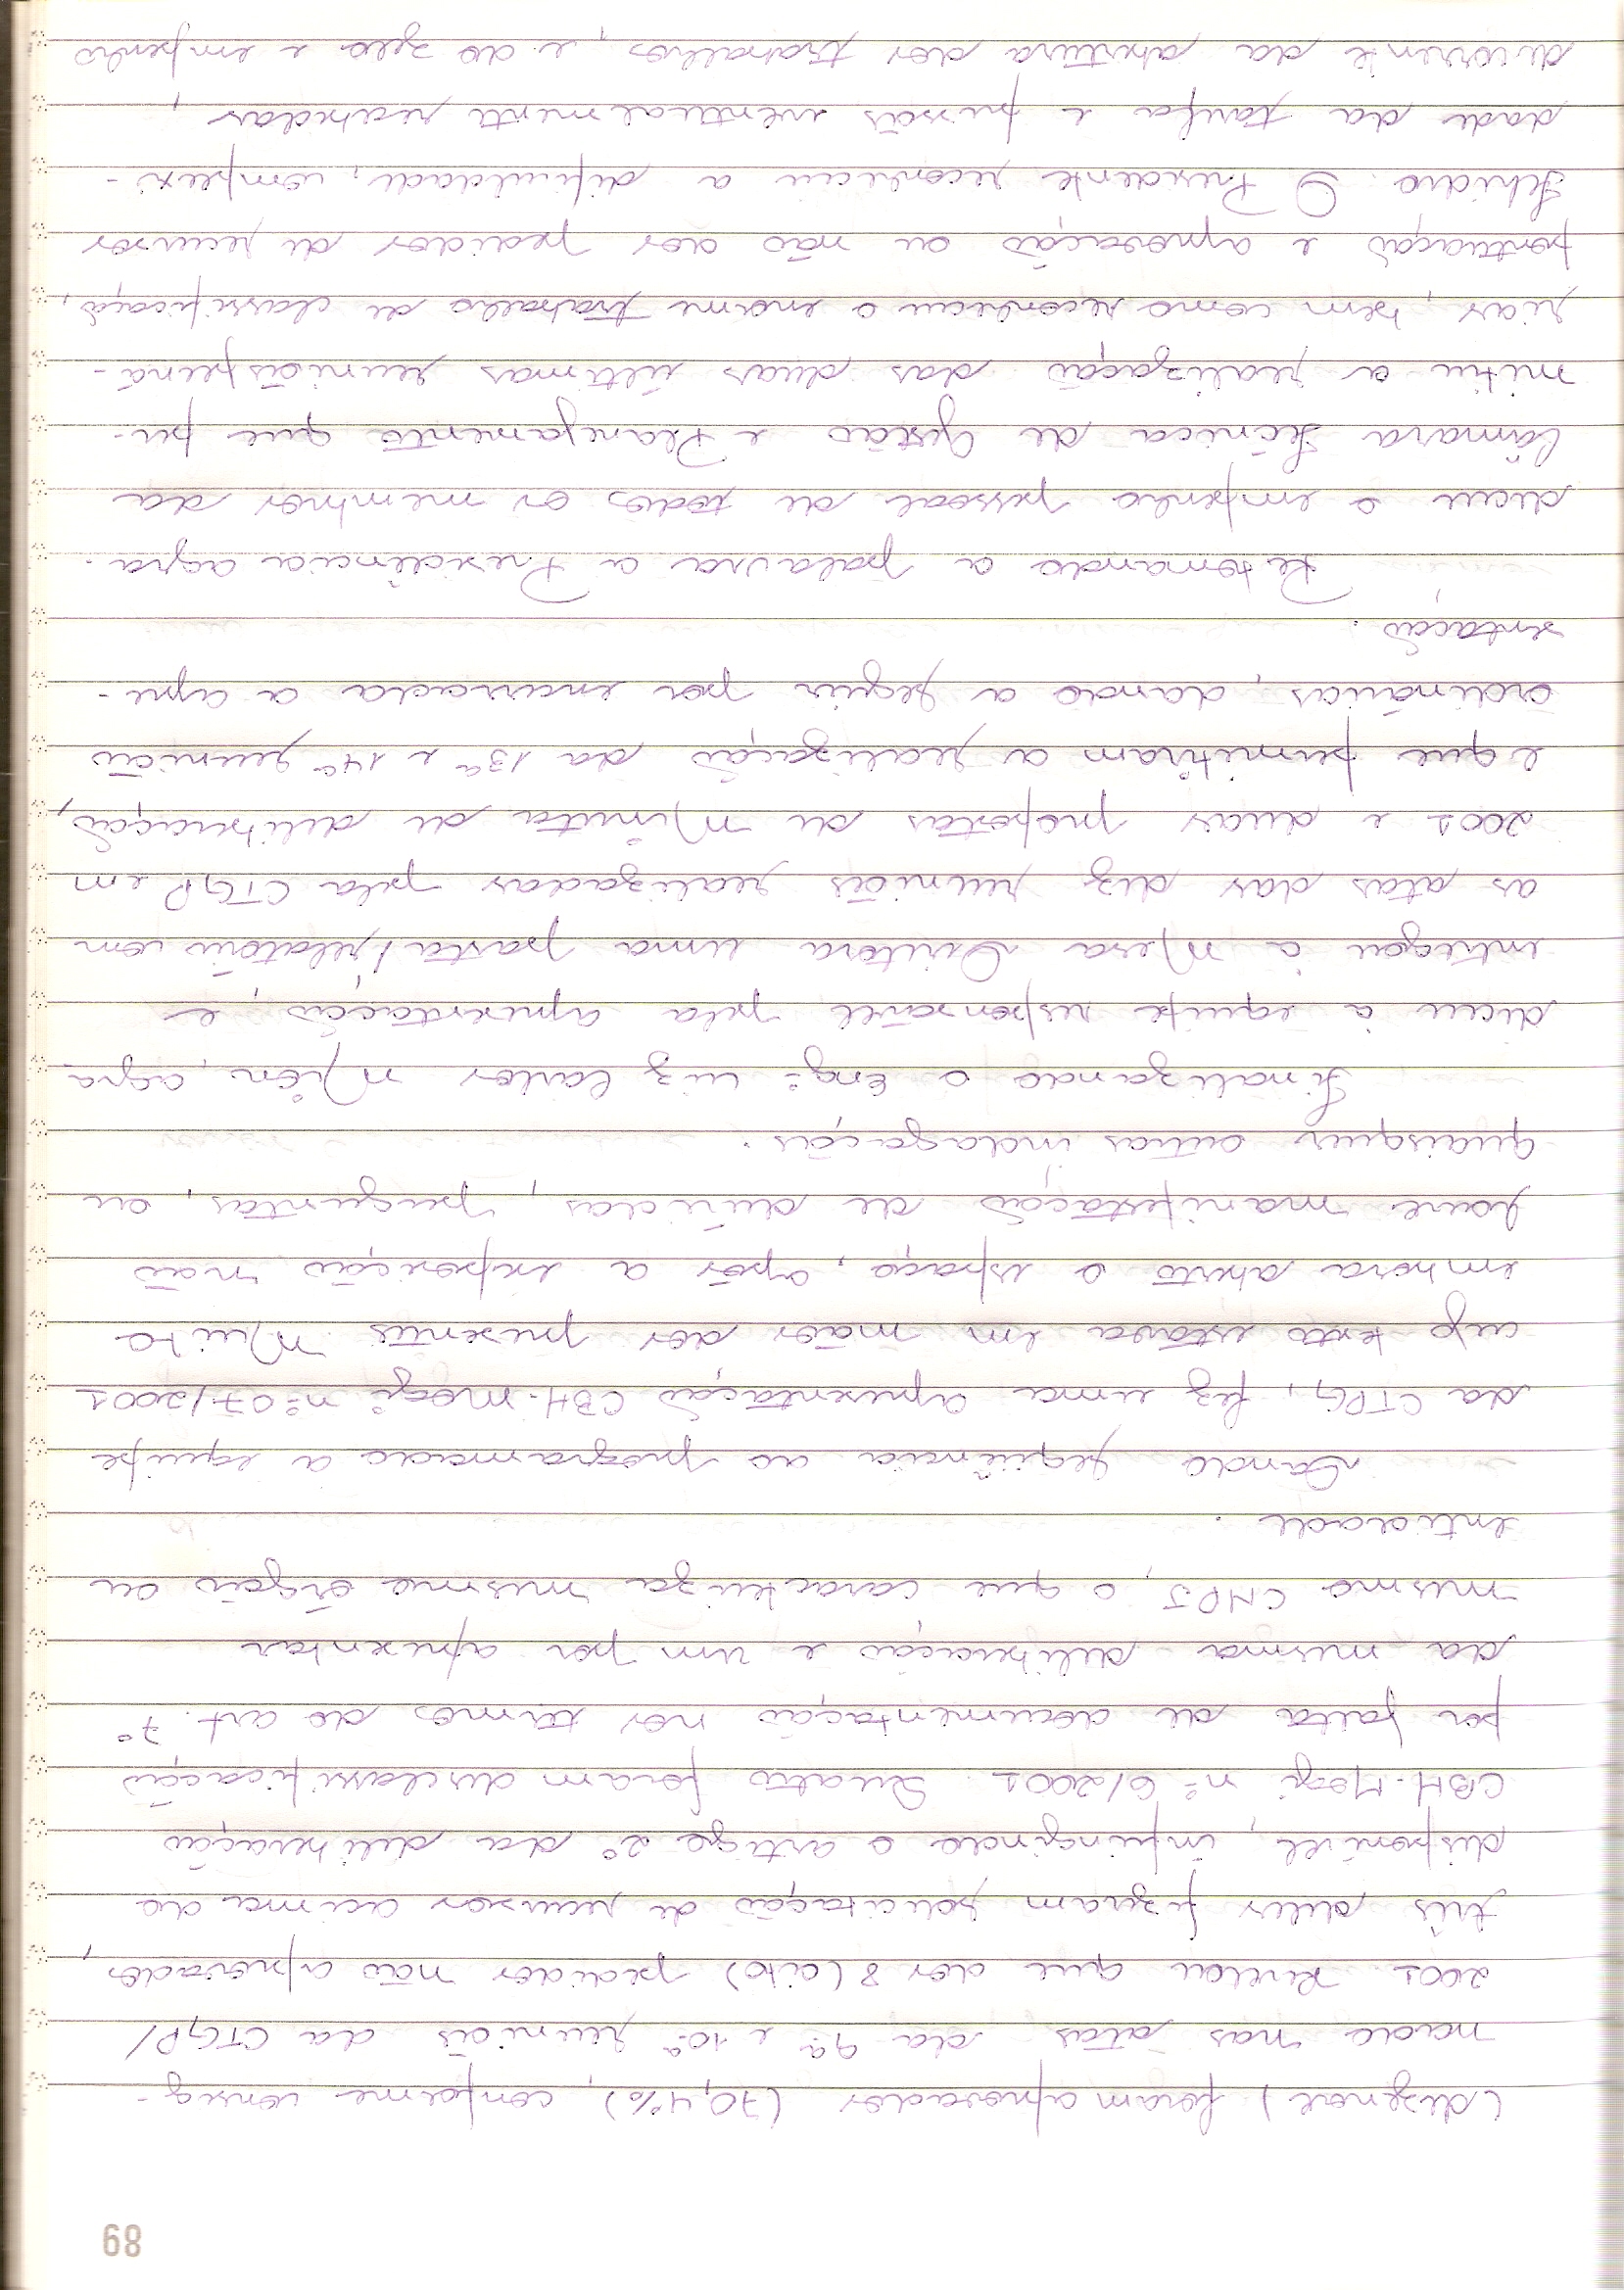 68
(dezenove) foram aprovados (70,4%), conforme consig-
nado nas atas da 9ª e 10ª reuniões da CTGP/
2001. Revelou que dos 8 (oito) pedidos não aprovados,
três deles fizeram solicitação de recursos acima do
disponível, infringindo o artigo 2º da deliberação
CBH-Mogi nº 6/2001. Quatro foram desclassificação
por falta de documentação nos termos do art. 7º
da mesma deliberação e um por apresentar
mesmo CNPJ, o que caracteriza mesmo órgão ou
entidade.
Dando seqüência ao programado a equipe
da CTPG, fez uma apresentação CBH-Mogi nº 07/2001
cujo texto estava em mãos dos presentes. Muito
embora aberto o espaço, após a exposição não
houve manifestação de dúvidas, perguntas, ou
quaisquer outras indagações.
Finalizando o Engº Luiz Carlos Mion, agra-
deceu à equipe responsável pela apresentação, e
entregou à Mesa Diretora uma pasta/relatório com
as atas das dez reuniões realizadas pela CTGP em
2001 e duas propostas de Minuta de deliberação,
e que permitiram a realização da 13ª e 14ª reunião
ordinárias, dando a seguir por encerrada a apre-
sentação.
Retomando a palavra a Presidência agra-
deceu o empenho pessoal de todos os membros da
Câmara Técnica de Gestão e Planejamento que per-
mitiu a realização das duas últimas reuniões plená-
rias, bem como reconheceu o enorme trabalho de classificação,
pontuação e aprovação ou não dos pedidos de recursos
Fehidro. O Presidente reconheceu a dificuldade, complexi-
dade da tarefa e pressões eventualmente recebidas,
decorrente da abertura dos trabalhos, e do zelo e empenho